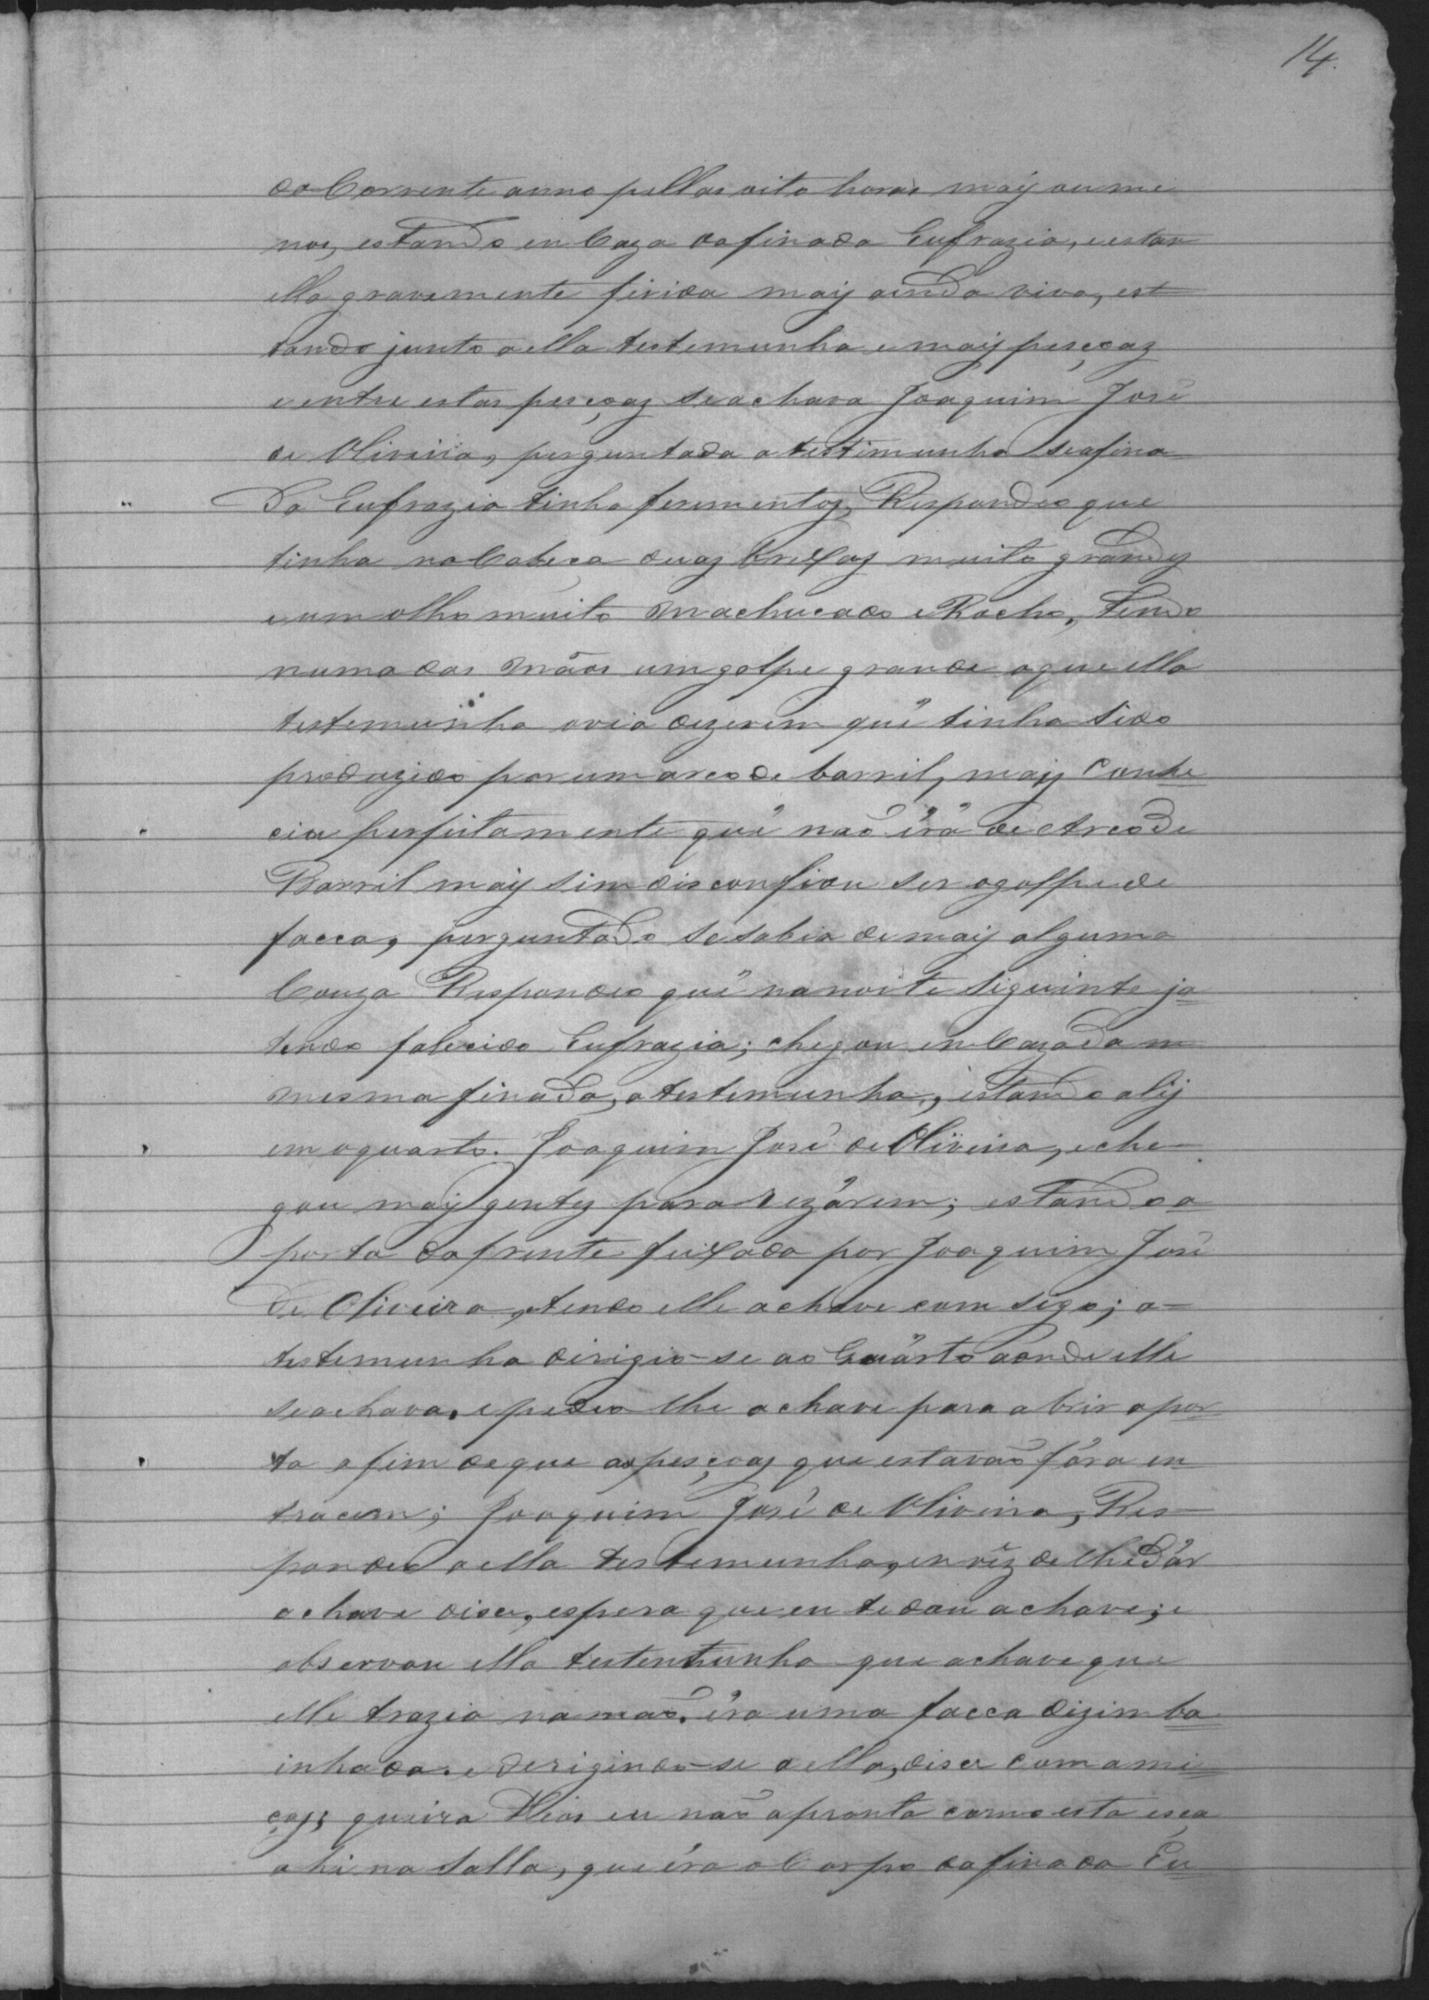 14.
do Corrente anno pellas oito horas maiz ou me
nos, estando en Caza dafinada Eufrazia, eestan
ella gravemente firida maiz ainda viva, est
tando junto a ella testemunha e maiz peçoaz
e entre estas peçoaz se achava Joaquim José
de Oliveira, perguntada a testimunha se afina
da Eufrazia tinha ferimentoz, Respondeo que
tinha na Cabeça duaz brexaz muito grandz
e um olho muito Machucado e Rocho, tendo
numa das Mãos um golpe grande a que ella
testemunha ovio dizerem que tinha sido
produzido por um arco de barril, maiz Conhe
cia perfeitamente que não éra de Arco de
Barril maiz sim disconfiou ser o golpe de
facca, perguntado se sabia de maiz alguma
Couza Respondeo que na noite siguinte ja
tendo falecido Eufrazia; chegou en Caza da m
mesma finada, a testimunha, estando aliz
em o quarto. Joaquim José de Oliveira, e che
gou maiz gentez para rezárem; estando a
porta dafrente feixada por Joaquim José
de Oliveira, tendo elle a chave com sigo; a
testemunha dirigio-se ao Quarto aonde elle
se achava, e pedeo lhe a chave para abrir a por
ta afim de que as peçoaz que estavão fóra en
tracem; Joaquim José de Oliveira, Res
pondeo a ella testemunha, en vêz de lhe dár
a chave dise, espera que eu te dou a chave; e
observou ella testemunha que a chave que
elle trazia na mão, éra uma facca dizimba
inhada. e derigindo-se a ella, dise com ami
çaz, queira Deos eu não apronta como esta esça
ahi na Salla, que éra o Corpo dafinada Eu